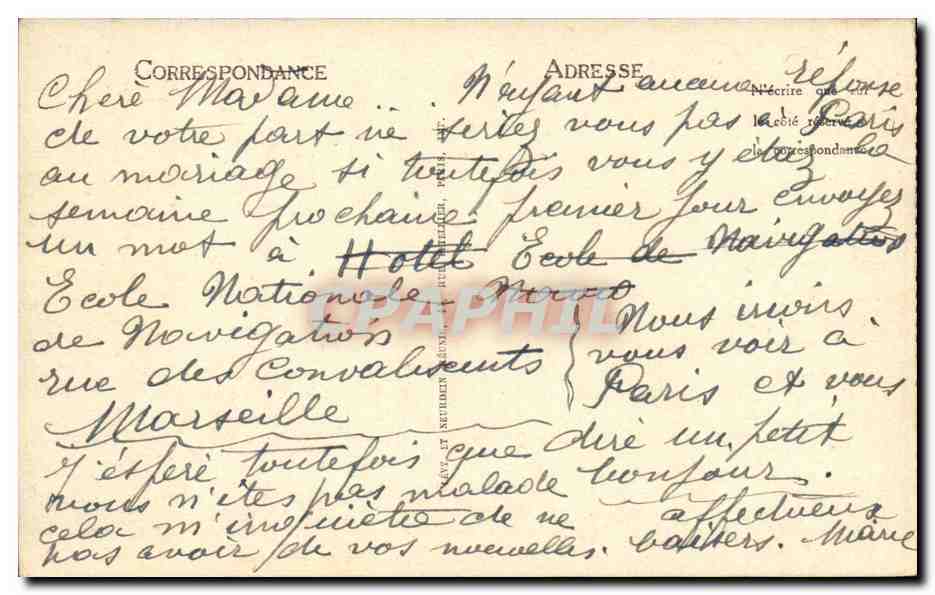 CORRESPONDANCE
ADRESSE
N'écrire que sur
le côté réservé à
la correspondance
Cheré Madame... N'eyant aucune réponse
de votre part ne seriez vous pas à Paris
au mariage si toutefois vous y etiez la
semaine prochaine premier jour envoyez
un mot à Hotel Ecole de Navigation
Ecole Nationale
de Navigation
rue des Convalescents
Marseille
Nous irions
vous voir à
Paris et vous
dire un petit
bonjour.
J'éspéré toutefois que
vous n'êtes pas malade
cela m'inquiète de ne
pas avoir de vos nouvelles.
affectueux
baisers. Marie
LÉVY ET NEURDEIN RÉUNIS, RUE LETELLIER, PARIS, IMP.
CPAPHIL